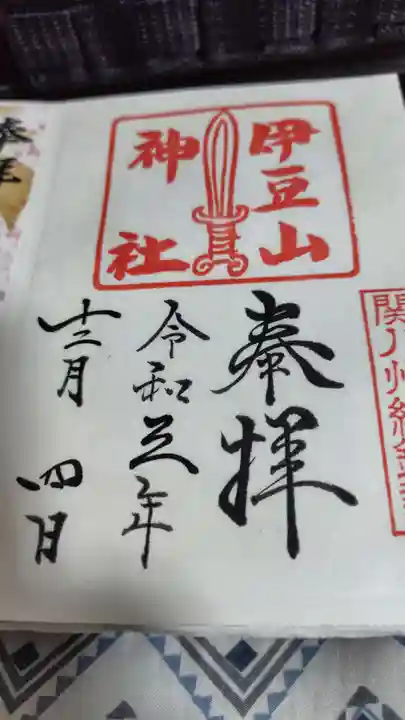 関八州総鎮
伊豆山
神社
奉拝
令和元年
十二月四日
奉拝